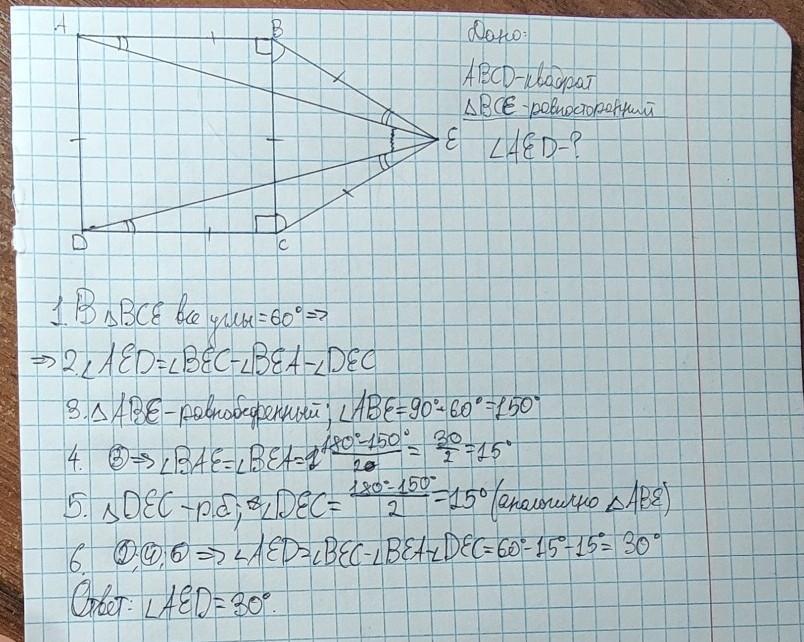 A
B
E
D
C
Дано:
ABCD-квадрат
△BCE-равносторонний
∠AED-?
1. В △BCE все углы=60°⇒
⇒ 2. ∠AED=∠BEC-∠BEA-∠DEC
3. △ABE-равнобедренный; ∠ABE=90°+60°=150°
4. ③⇒∠BAE=∠BEA= (180°-150°)/2 = 30/2 =15°
5. △DEC-р.б; ∠DEC= (180°-150°)/2 =15° (аналогично △ABE)
6. ②,④,⑤ ⇒ ∠AED=∠BEC-∠BEA-∠DEC=60°-15°-15°= 30°
Ответ: ∠AED=30°.